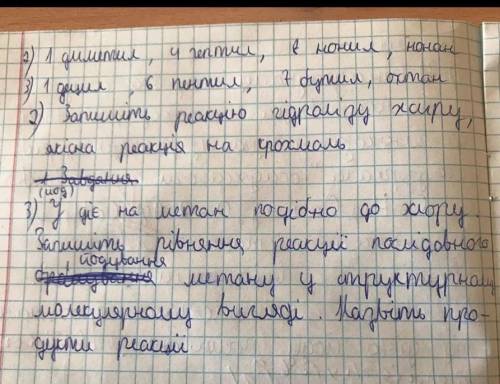 2) 1 диметил, 4 гептил, 8 нонил, нонан
3) 1 децил, 6 пентил, 7 бутил, октан
2) Запишіть реакцію гідролізу жиру,
якісна реакція на крохмаль
(йод)
3) У діє на метан подібно до хлору.
Запишіть рівняння реакції послідовного
йодування
метану у структурному
молекулярному вигляді. Назвіть про-
дукти реакції